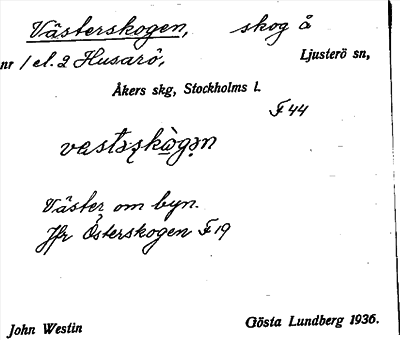 Västerskogen, skog å
nr 1 el. 2 Husarö, Ljusterö sn,
Åkers skg, Stockholms l.
F 44
Väster om byn.
Jfr Österskogen F 19
John Westin Gösta Lundberg 1936.